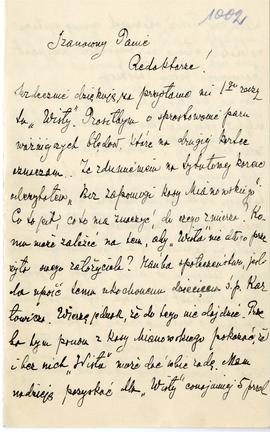 1002
Szanowny Panie
Redaktorze!
Serdecznie dziękuję za przysłany mi 1szy zeszyt
tu „Wisły”. Prosiłbym o sprostowanie paru
ważniejszych błędów, które na drugiej kartce
oznaczam. Ze zdumieniem na tytułowej karcie
„Bez zapomogi Kasy Mianowskiego”.
Co to jest, co to ma znaczyć, do czego zmierza? Ko-
mu może zależeć na tem, aby „Wisła” nie
swego założyciela? Hańba społeczeństwu, jeśli
da upaść temu ukochanemu dziecięciu ś.p. Kar-
łowicza. Wierzę jednak, że do tego nie dojdzie. Trze-
ba tym panom z Kasy Mianowskiego pokazać, że
i bez nich „Wisła” może dać sobie radę. Mam
nadzieję pozyskać dla „Wisły” conajmniej 5 pred-